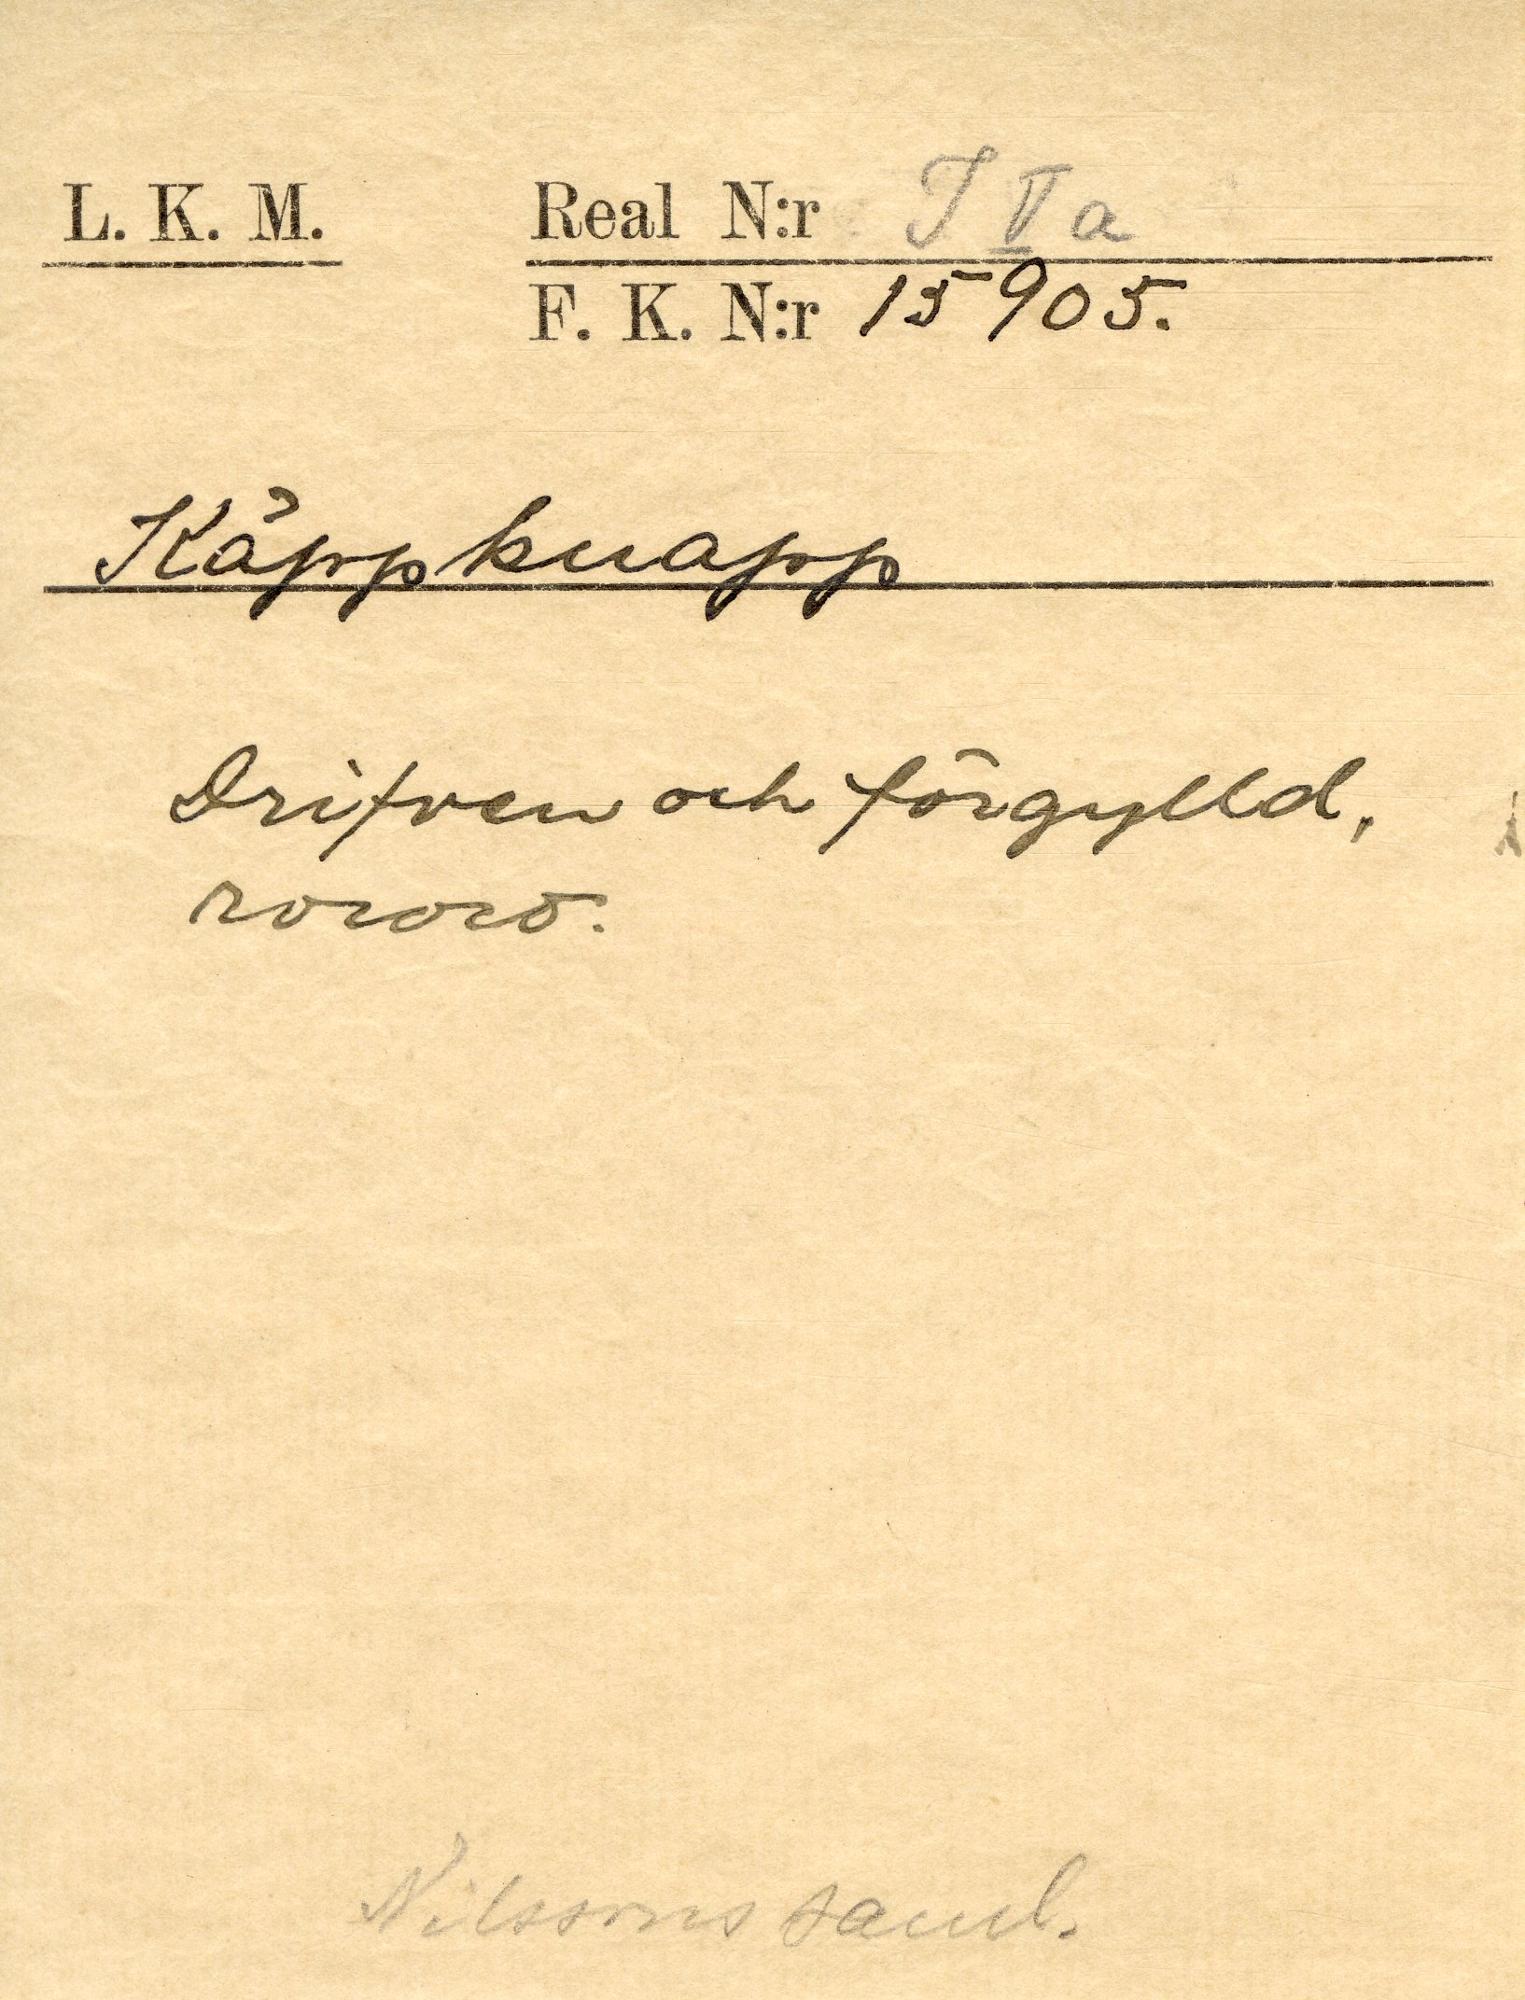 L. K. M. Real N:r I V a
F. K. N:r 15905.
Käppknapp
Drifven och förgylld,
rococo.
Nilssons saml.